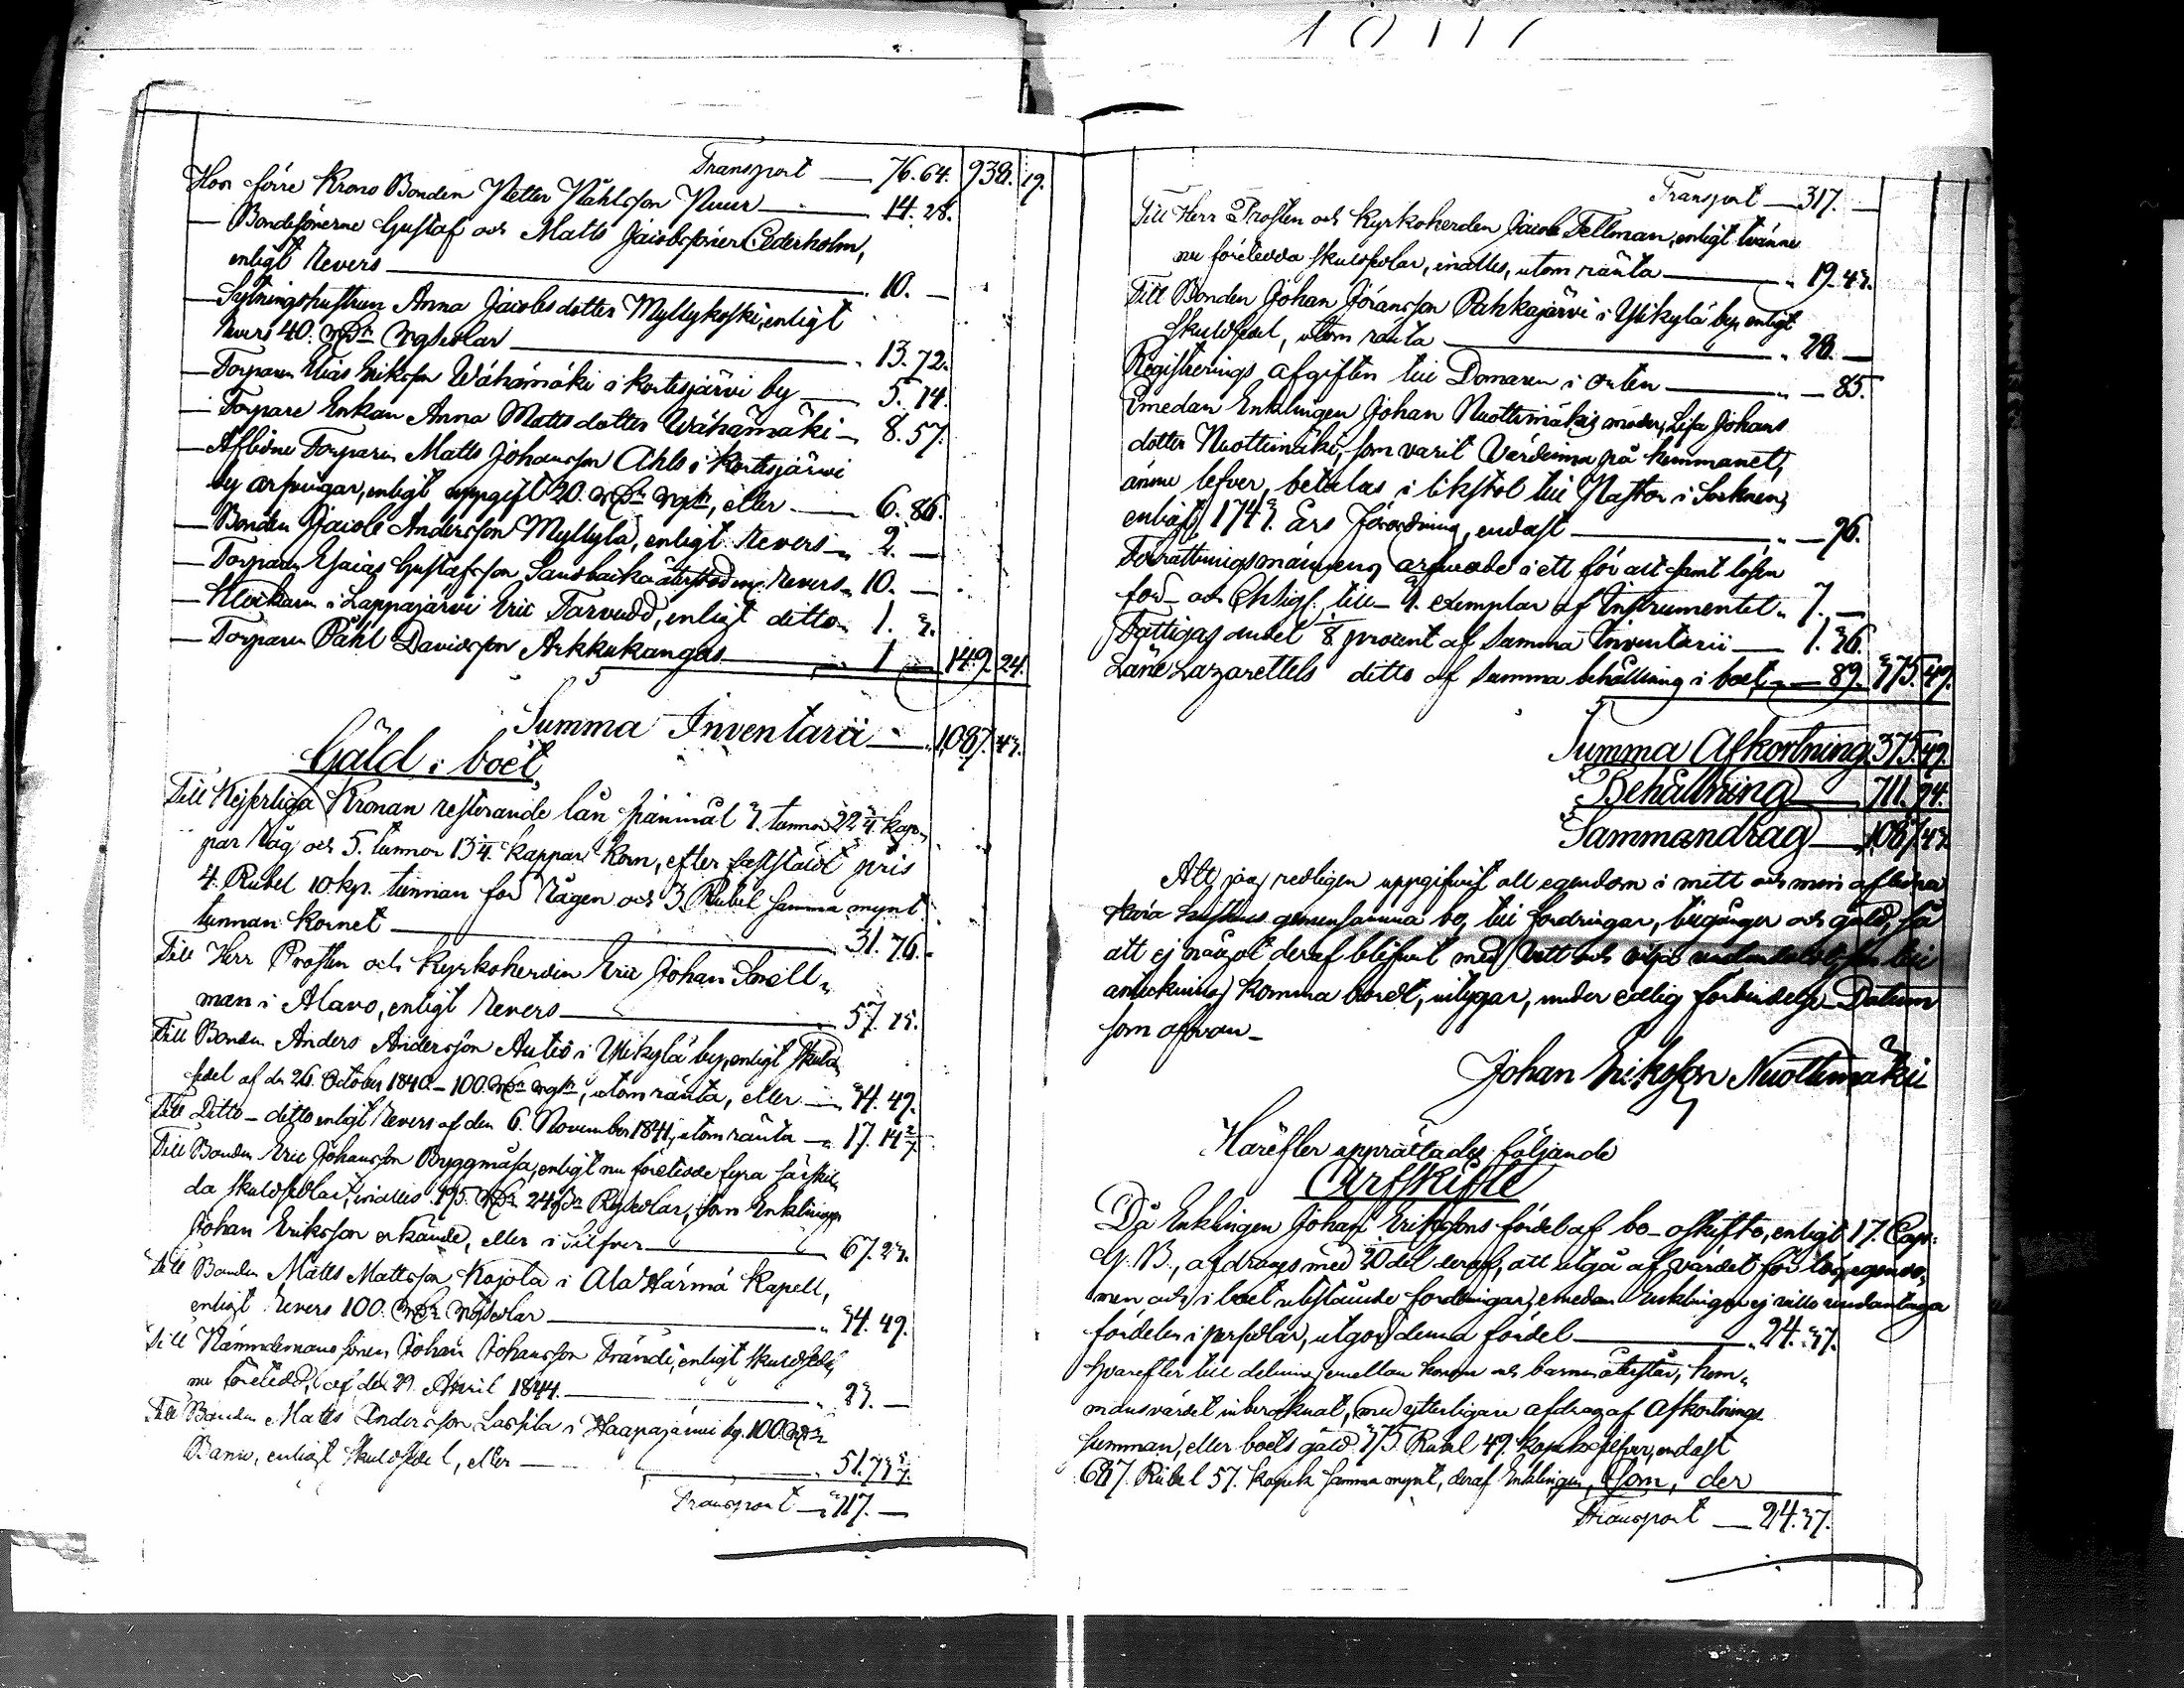 Transport — 76. 64. 938. 19.
Hos förre Krono Bonden Petter Påhlsson Nuur — 14. 28.
— Bondesönerne Gustaf och Matts Jacobssöner Cederholm,
enligt Revers — 10. —
— Sytningshustrun Anna Jacobsdotter Myllykoski, enligt
Revers 40. Rgsedlar — 13. 72.
— Torparen Elias Eriksson Wähämäki i Kortesjärvi by — 5. 14.
— Torpare Enkan Anna Mattsdotter Wähämäki — 8. 57.
— Aflidne Torparen Matts Johansson Ahls i Kortesjärvi
by arfvingar, enligt uppgift 20. eller — 6. 86.
— Bonden Jacob Andersson Myllylä, enligt Revers „ 2. —
— Torparen Esaias Gustafsson återstod Revers „ 10. —
— Klockaren i Lappajärvi Eric Tarvudd, enligt ditto „ 1. 3.
— Torparen Påhl Davidsson Arkkukangas — „ 1 — 149. 24.
Summa Inventarii — „ 1,087. 43.
Gäld i boet,
Till Kejserliga Kronan resterande lån spanmål 3. tunnor 22 3/4 kap„
par Råg och 5. tunnor 13 3/4. kappar Korn, efter faststäldt pris
4. Rubel 10 kp. tunnan för Rågen och 3. Rubel samma mynt
tunnan Kornet — 31. 76.
Till Herr Prosten och Kyrkoherden Eric Johan Snell„
man i Alavo, enligt Revers — „ 57. 15.
Till Bonden Anders Andersson Autio i Ylikylä by, enligt skuld
sedel af den 26. October 1840. — 100. utom ränta, eller — 34. 49.
Till Ditto — ditto enligt Revers af den 6. November 1841, utom ränta — „ 17. 14 2/7
Till Bonden Eric Johansson Byggmäsa, enligt nu företedde fyra särskil„
da skuldsedlar, inalles 195. 24 Rgsedlar, som Enklingen
Johan Eriksson erkände, eller i Silfver — 67. 23.
Till Bonden Matts Mattsson Kojola i Ala Härmä Kapell,
enligt Revers 100. Rgsedlar — „ 34. 49.
Till Nämndemans sonen Johan Johansson Frändi, enligt skuldsedel,
nu företedd, af den 29. April 1844. — „ 23. —
Till Bonden Matts Andersson Lassila i Haapajärvi by. 100.
Banco, enligt skuldsedel, eller — „ 51. 73 5/7.
Transport — „ 317. —
Transport — 317. —
Till Herr Prosten och Kyrkoherden Jacob Fellman, enligt tvänne
nu företedda skuldsedlar, inalles, utom ränta — „ 19. 43.
Till Bonden Johan Jöransson Pahkajärvi i Ylikylä by, enligt
skuldsedel, utom ränta — „ 28. —
Registrerings afgiften till Domaren i orten — „ — 85.
Emedan Enklingen Johan Nuottimäkis moder, Lisa Johans
dotter Nuottimäki, som varit Värdinna på hemmanet,
ännu lefver, betalas i likstol till Pastor i Socknen,
enligt 1743. Års Förordning, endast — „ — 96.
Förrättningsmännens arfvode i ett för allt samt lösen
för — och Chtigf. till — 3. exemplar af Instrumentet „ 7. —
Fattigas andel 1/8 procent af Summa Inventarii — 1. 36.
Läne Lazarettets ditto af Summa behållning i boet „ — 89. 375. 49.
Summa Afkortning 375. 49.
Behållning — 711. 94.
Sammandrag — 1,087. 43.
Att jag redligen uppgifvit all egendom i mitt och min aflidna
kära hustrus gemensamma bo, till fordringar, tilgångar och gäld, så
att ej något deraf blifvit med vett och vilja undandoldt, som till
anteckning komma bordt, intygar, under edlig förbindelse. Datum
som ofvan —
Johan Eriksson Nuottimäki
Härefter upprättades följande
Arfskifte
Då Enklingen Johan Erikssons fördel af bo — oskifto, enligt 17. Cap:
G. B., afdrages med 20 del deraf, att utgå af värdet för lösegendo„
men och i boet utestående fordringar, emedan Enklingen ej ville undantaga
fördelen i persedlar, utgör denna fördel — „ 24. 37.
hvarefter till delning emellan honom och barnen återstår, hem„
mansvärdet inberäknat, med ytterligare afdrag af Afkortnings
summan, eller boets gäld 375. Rubel 49. kopek silfver, endast
687. Rubel 57. kopek samma mynt, deraf Enklingen, som, der
Transport — 24. 37.